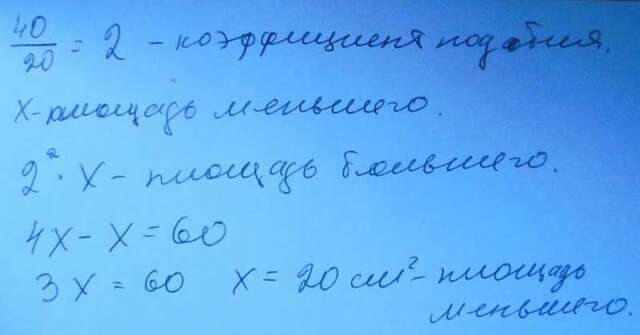 40/20 = 2 – коэффициент подобия.
x – площадь меньшего.
2² · x – площадь большего.
4x – x = 60
3x = 60 x = 20 см² – площадь
меньшего.